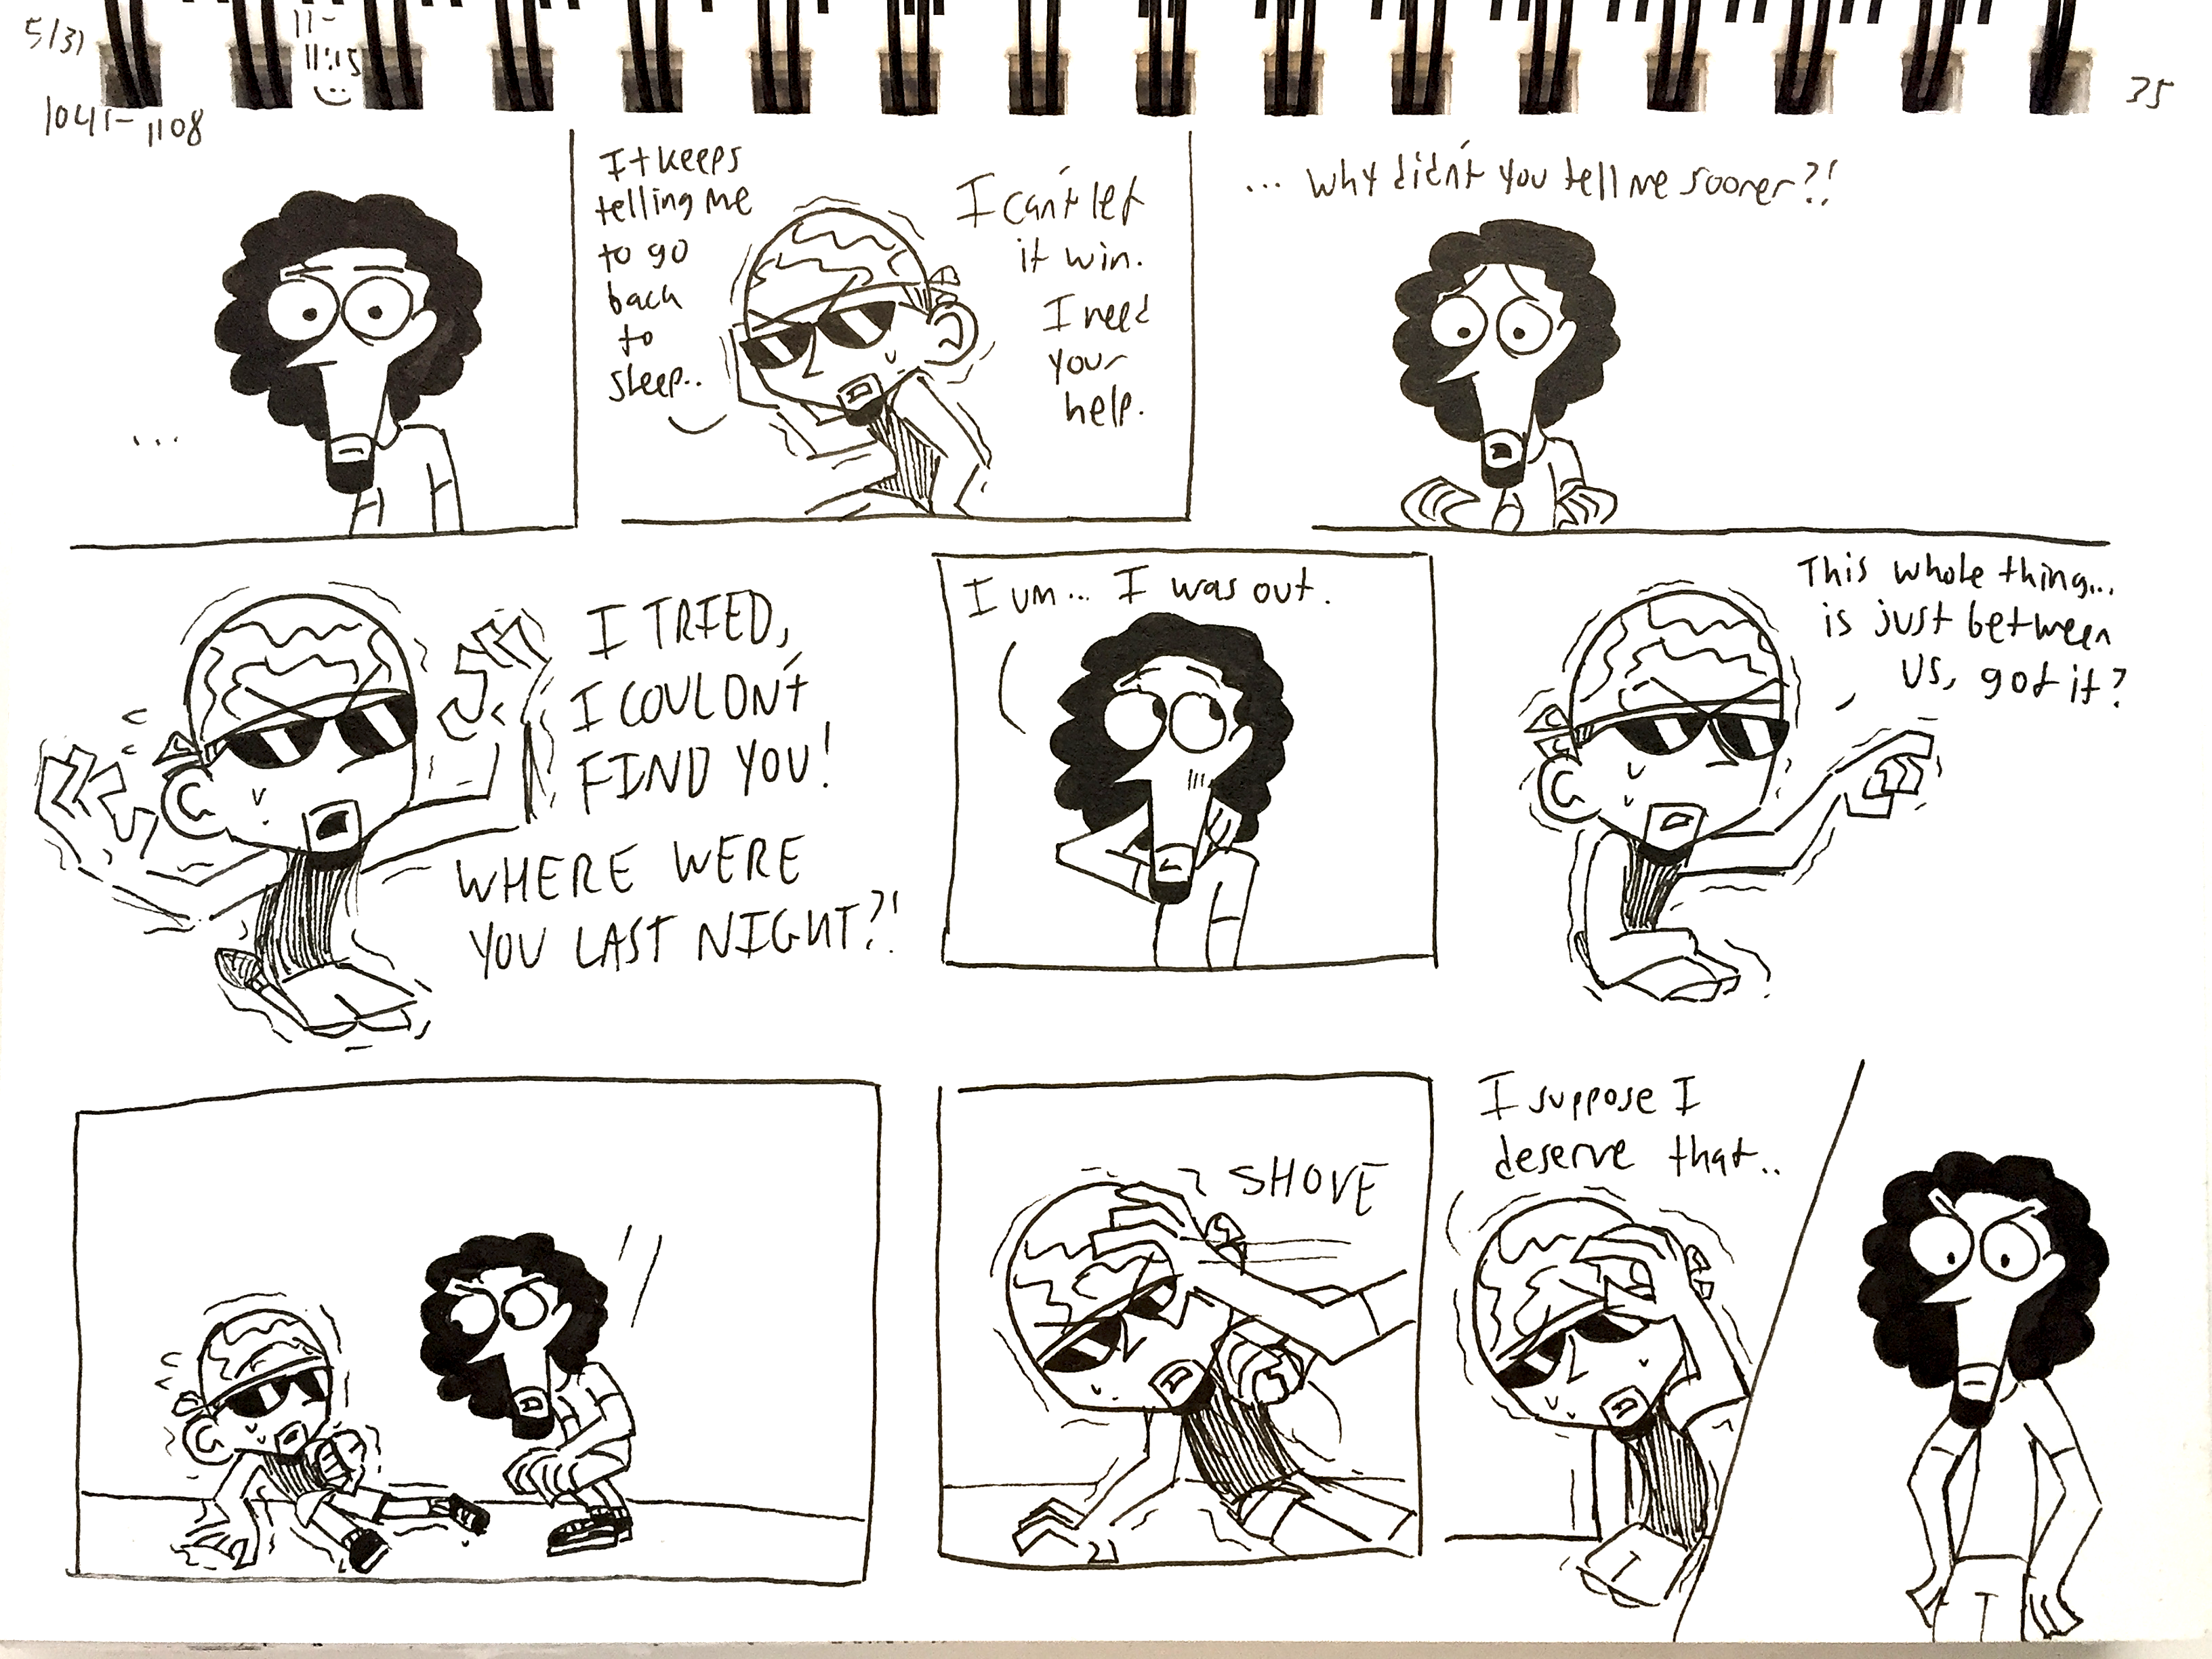 5/31
11-
11:15
1041-1108
35
...
It keeps
telling me
to go
back
to
sleep..
I can't let
it win.
I need
your
help.
... Why didn't you tell me sooner?!
I TRIED,
I COULDN't
FIND YOU!
WHERE WERE
YOU LAST NIGHT?!
I um... I was out.
This whole thing...
is just between
us, got it?
SHOVE
I suppose I
deserve that..